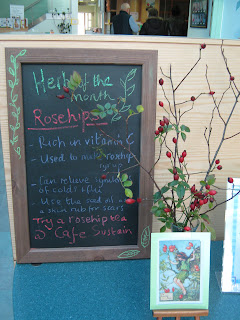 Herb of the
month
Rosehip
- Rich in vitamin C
- Used to make rosehip
syrup
- Can relieve symptoms
of colds & flu
- Use the seed oil as
a skin rub for scars
Try a rosehip tea
@ Cafe Sustain